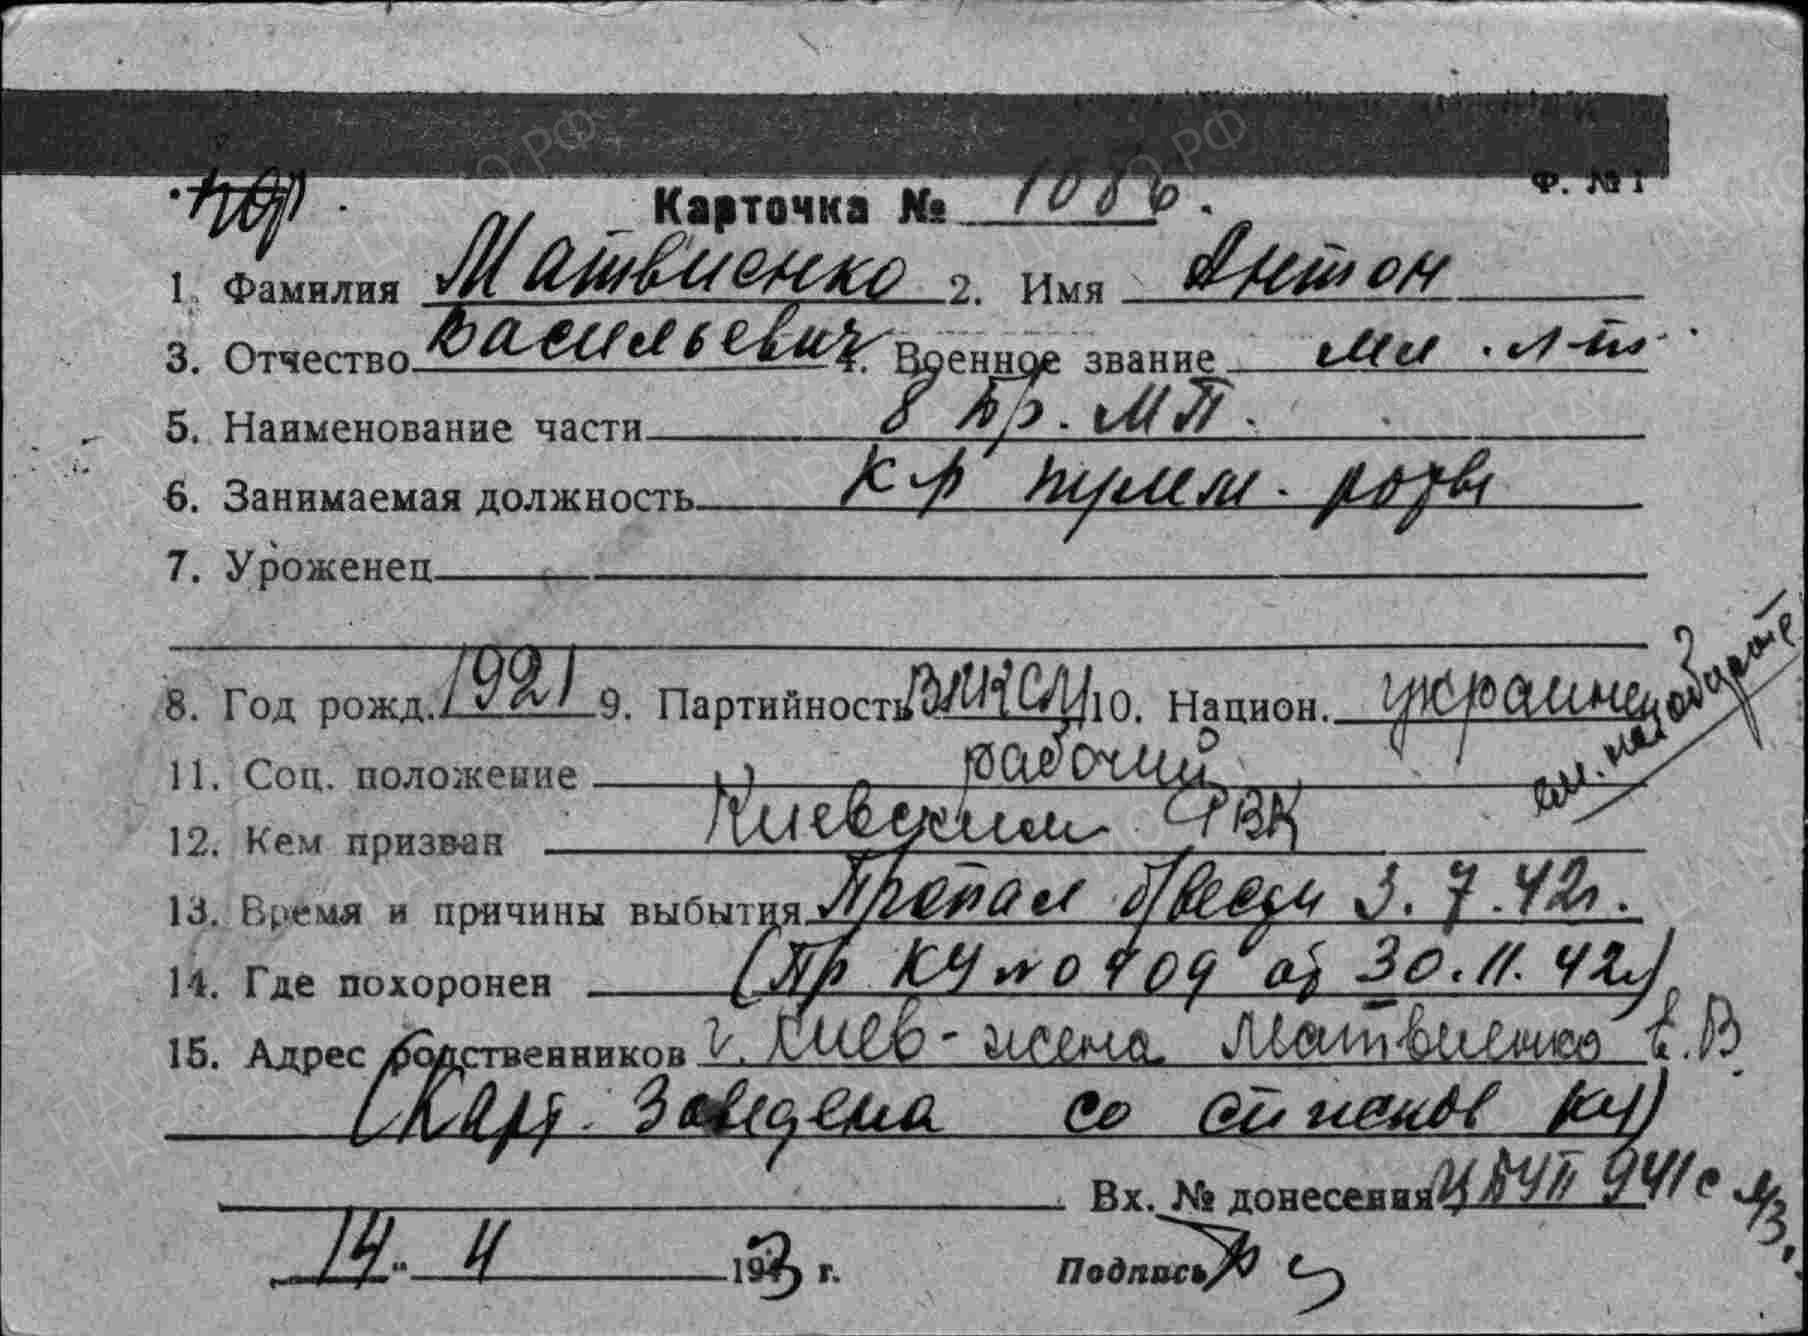 Ф. № 1
Карточка № 1086.
1. Фамилия Матвиенко 2. Имя Антон
3. Отчество Васильевич 4. Военное звание мл. л-т
5. Наименование части 8 бр. МП.
6. Занимаемая должность к-р пулем. роты
7. Уроженец
8. Год рожд. 1921 9. Партийность ВЛКСМ 10. Национ. украинец
см. на обороте
11. Соц. положение рабочий
12. Кем призван Киевским РВК
13. Время и причины выбытия Пропал б/вести 3.7.42г.
14. Где похоронен (Пр КЧ №0409 от 30.11.42г)
15. Адрес родственников г. Киев - жена Матвиенко Е.В.
(Карт. Заведена со списков КЧ)
Вх. № донесения ЦБУП 941с
14. 4 1943 г. Подпись